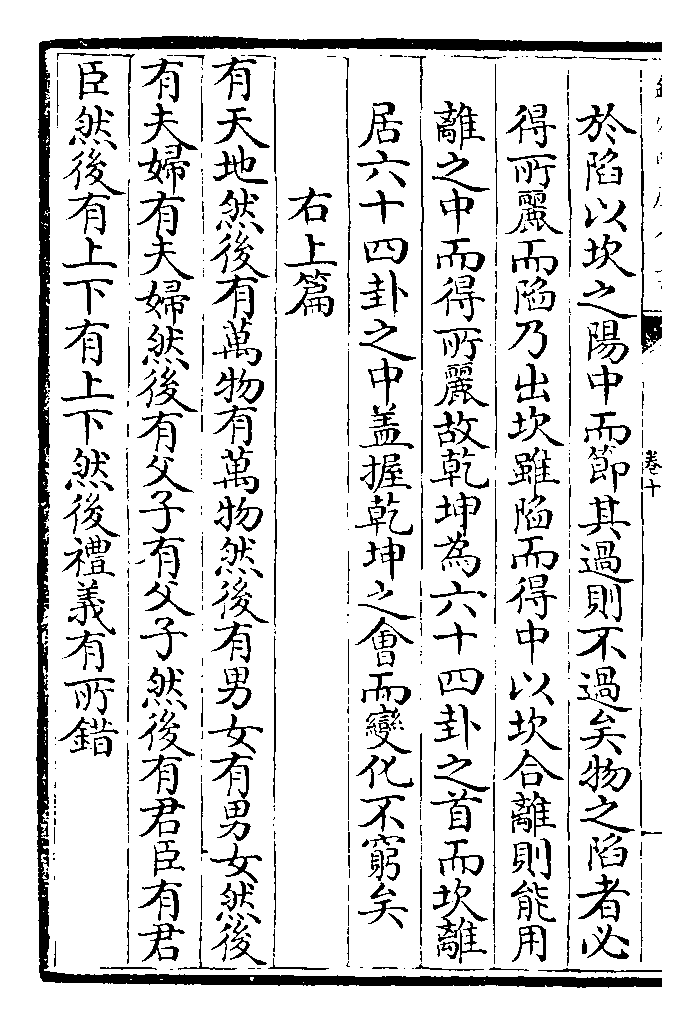 卷十
於陷以坎之陽中而節其過則不過矣物之陷者必
得所麗而陷乃出坎雖陷而得中以坎合離則能用
離之中而得所麗故乾坤為六十四卦之首而坎離
居六十四卦之中盖握乾坤之會而變化不窮矣
右上篇
有天地然後有萬物有萬物然後有男女有男女然後
有夫婦有夫婦然後有父子有父子然後有君臣有君
臣然後有上下有上下然後禮義有所錯